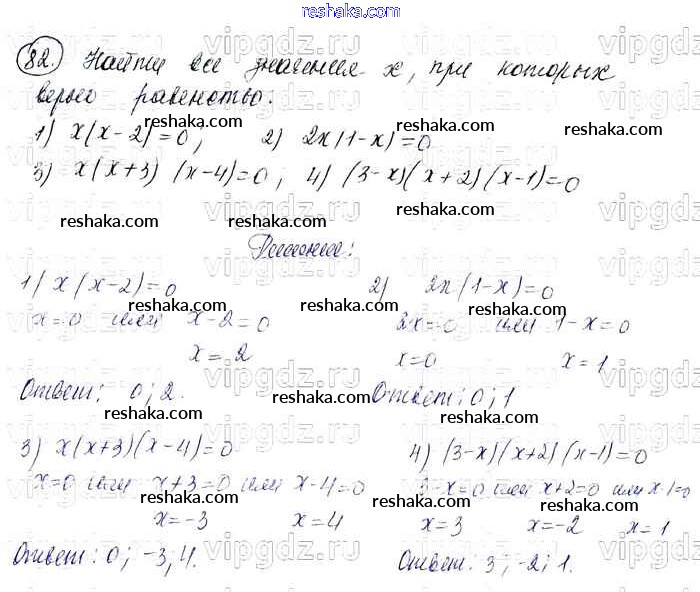 82. Найти все значения x, при которых
верно равенство:
1) x(x-2)=0; 2) 2x(1-x)=0
3) x(x+3)(x-4)=0; 4) (3-x)(x+2)(x-1)=0
Решение:
1) x(x-2)=0 2) 2x(1-x)=0
x=0 или x-2=0 2x=0 или 1-x=0
x=2 x=0 x=1
Ответ: 0; 2. Ответ: 0; 1
3) x(x+3)(x-4)=0 4) (3-x)(x+2)(x-1)=0
x=0 или x+3=0 или x-4=0 3-x=0 или x+2=0 или x-1=0
x=-3 x=4 x=3 x=-2 x=1
Ответ: 0; -3, 4. Ответ: 3; -2; 1.
reshaka.com
vipgdz.ru